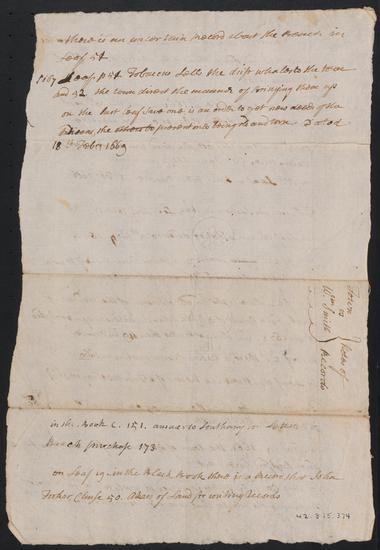 there is an uncertain record about the Beach in
Leaf 51
1667 Leaf p 51 Tobaccos Letts the drift whales to the town
and 52 the town direct the manner of bringing them up
on the last leaf save one is an order to get new deeds of the
Indians, the others to prevent into being and torn Dated
18th Febry 1669
Town
vs
Wm Smith
Notes of
Records
in the Book C. 151. answer to Southamp. or Setten
Beach purchase 173
on Leaf 19 in the Black Book there is a Record that John
Tooker Chuse 50. Akers of Land for writing Records
42.815.374